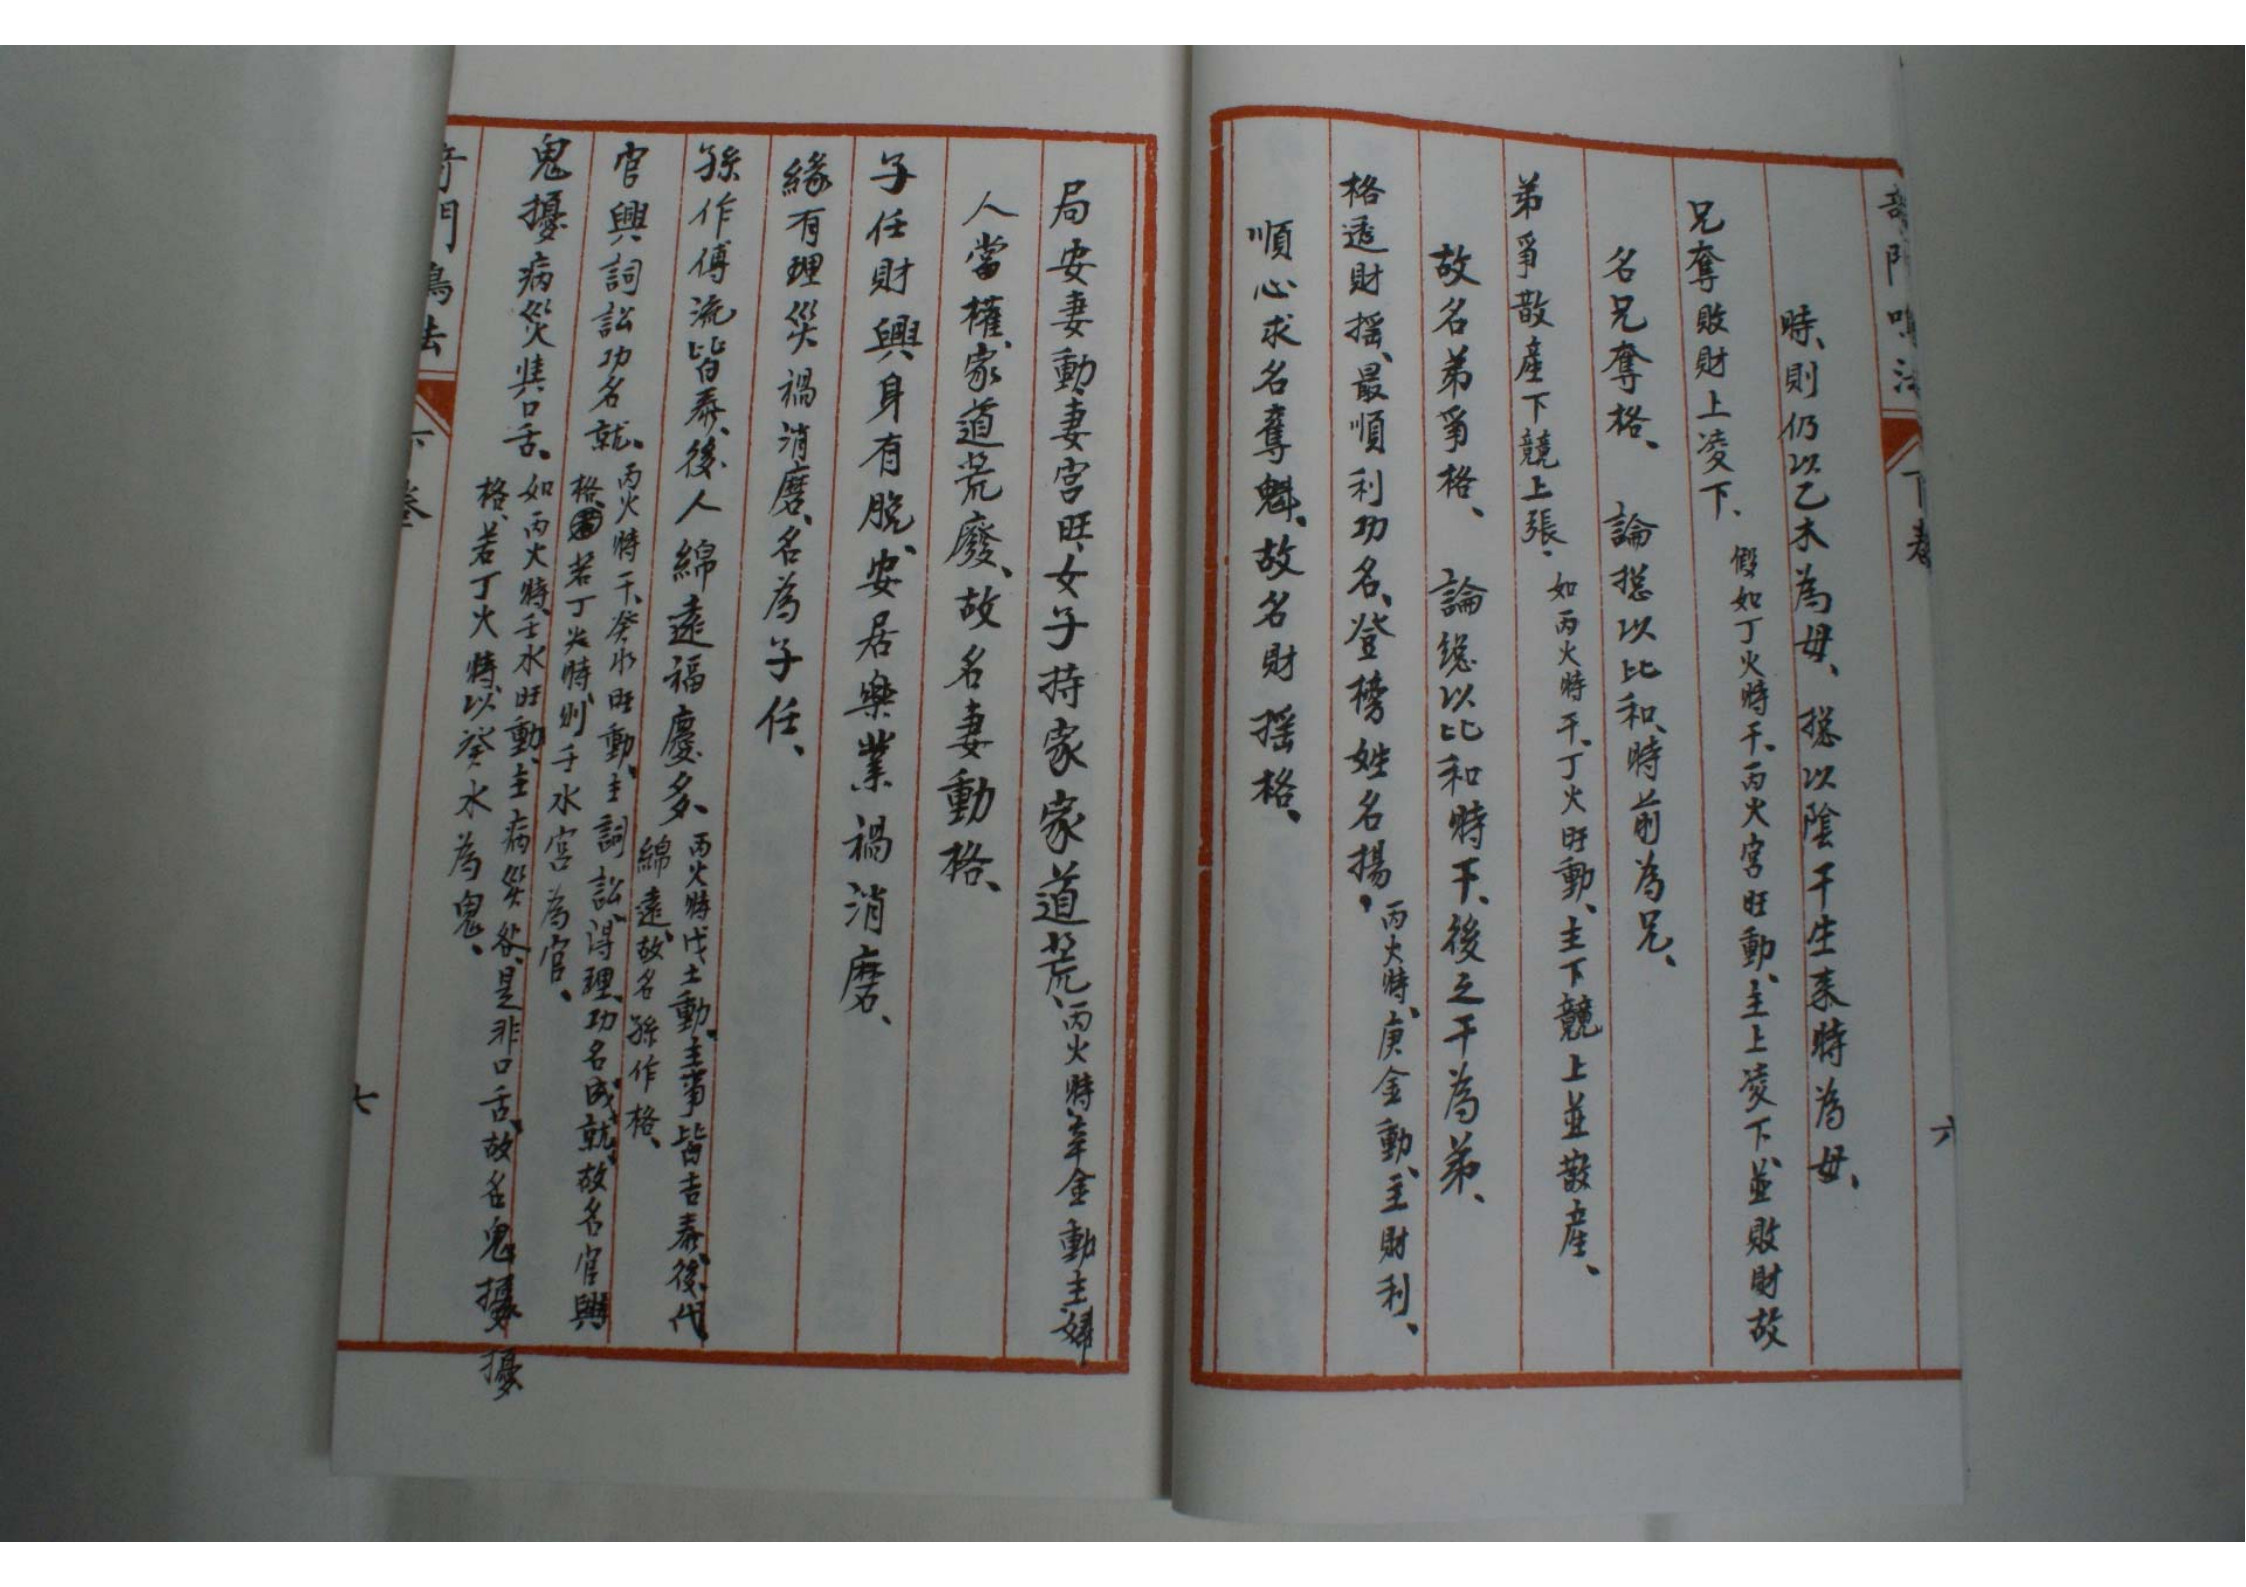 奇門鳴法
下卷
六
時、則仍以乙木為母、摠以陰干生來時為母、
兄奪敗財上凌下、假如丁火時干、丙火宮旺動、主上凌下、並敗財故
名兄奪格、論摠以比和、時前為兄、
弟爭散產下競上張、如丙火時干、丁火旺動、主下競上並散產、
故名弟爭格、論總以比和時干、後之干為弟、
格透財搖、最順利功名、登榜姓名揚、丙火時、庚金動、主財利、
順心求名奪魁、故名財搖格、
局安妻動、妻宮旺、女子持家家道荒、丙火時、辛金動主婦
人當權、家道荒廢、故名妻動格、
子任財興身有脫、安居樂業禍消磨、
緣有理災禍消磨、名為子任、
孫作傳流皆泰、後人綿遠福慶多、丙火時戊土動、主事皆吉泰、後代
綿遠、故名孫作格、
官興詞訟功名就、丙火時干、癸水旺動、主詞訟、得理、功名成就、故名官興
格、若丁火時、則壬水宮為官、
鬼擾病災惧口舌、如丙火時、壬水旺動、主病災、是非口舌、故名鬼擾擾
格、若丁火時、以癸水為鬼、
奇門鳴法
下卷
七